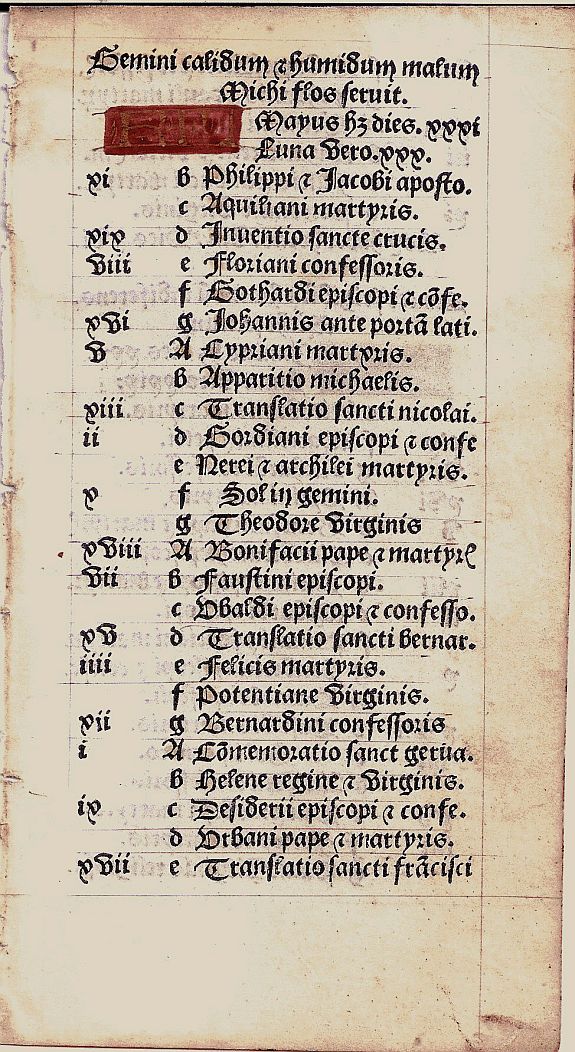 Gemini calidum ⁊ humidum malum
Michi flos seruit.
Mayus hꝫ dies. xxxi
Luna vero. xxx.
xi b Philippi ⁊ Jacobi aposto.
c Aquiliani martyris.
xix d Inuentio sancte crucis.
viii e Floriani confessoris.
f Gothardi episcopi ⁊ cõfe.
xvi g Johannis ante portã lati.
v A Cypriani martyris.
b Apparitio michaelis.
xiii c Translatio sancti nicolai.
ii d Gordiani episcopi ⁊ confe
e Nerei ⁊ archilei martyris.
x f Sol in gemini.
g Theodore virginis
xviii A Bonifacii pape ⁊ martyrꝭ
vii b Faustini episcopi.
c Vbaldi episcopi ⁊ confesso.
xv d Translatio sancti bernar.
iiii e Felicis martyris.
f Potentiane virginis.
xii g Bernardini confessoris
i A Cõmemoratio sanct gerua.
b Helene regine ⁊ virginis.
ix c Desiderii episcopi ⁊ confe.
d Vrbani pape ⁊ martyris.
xvii e Translatio sancti frãcisci